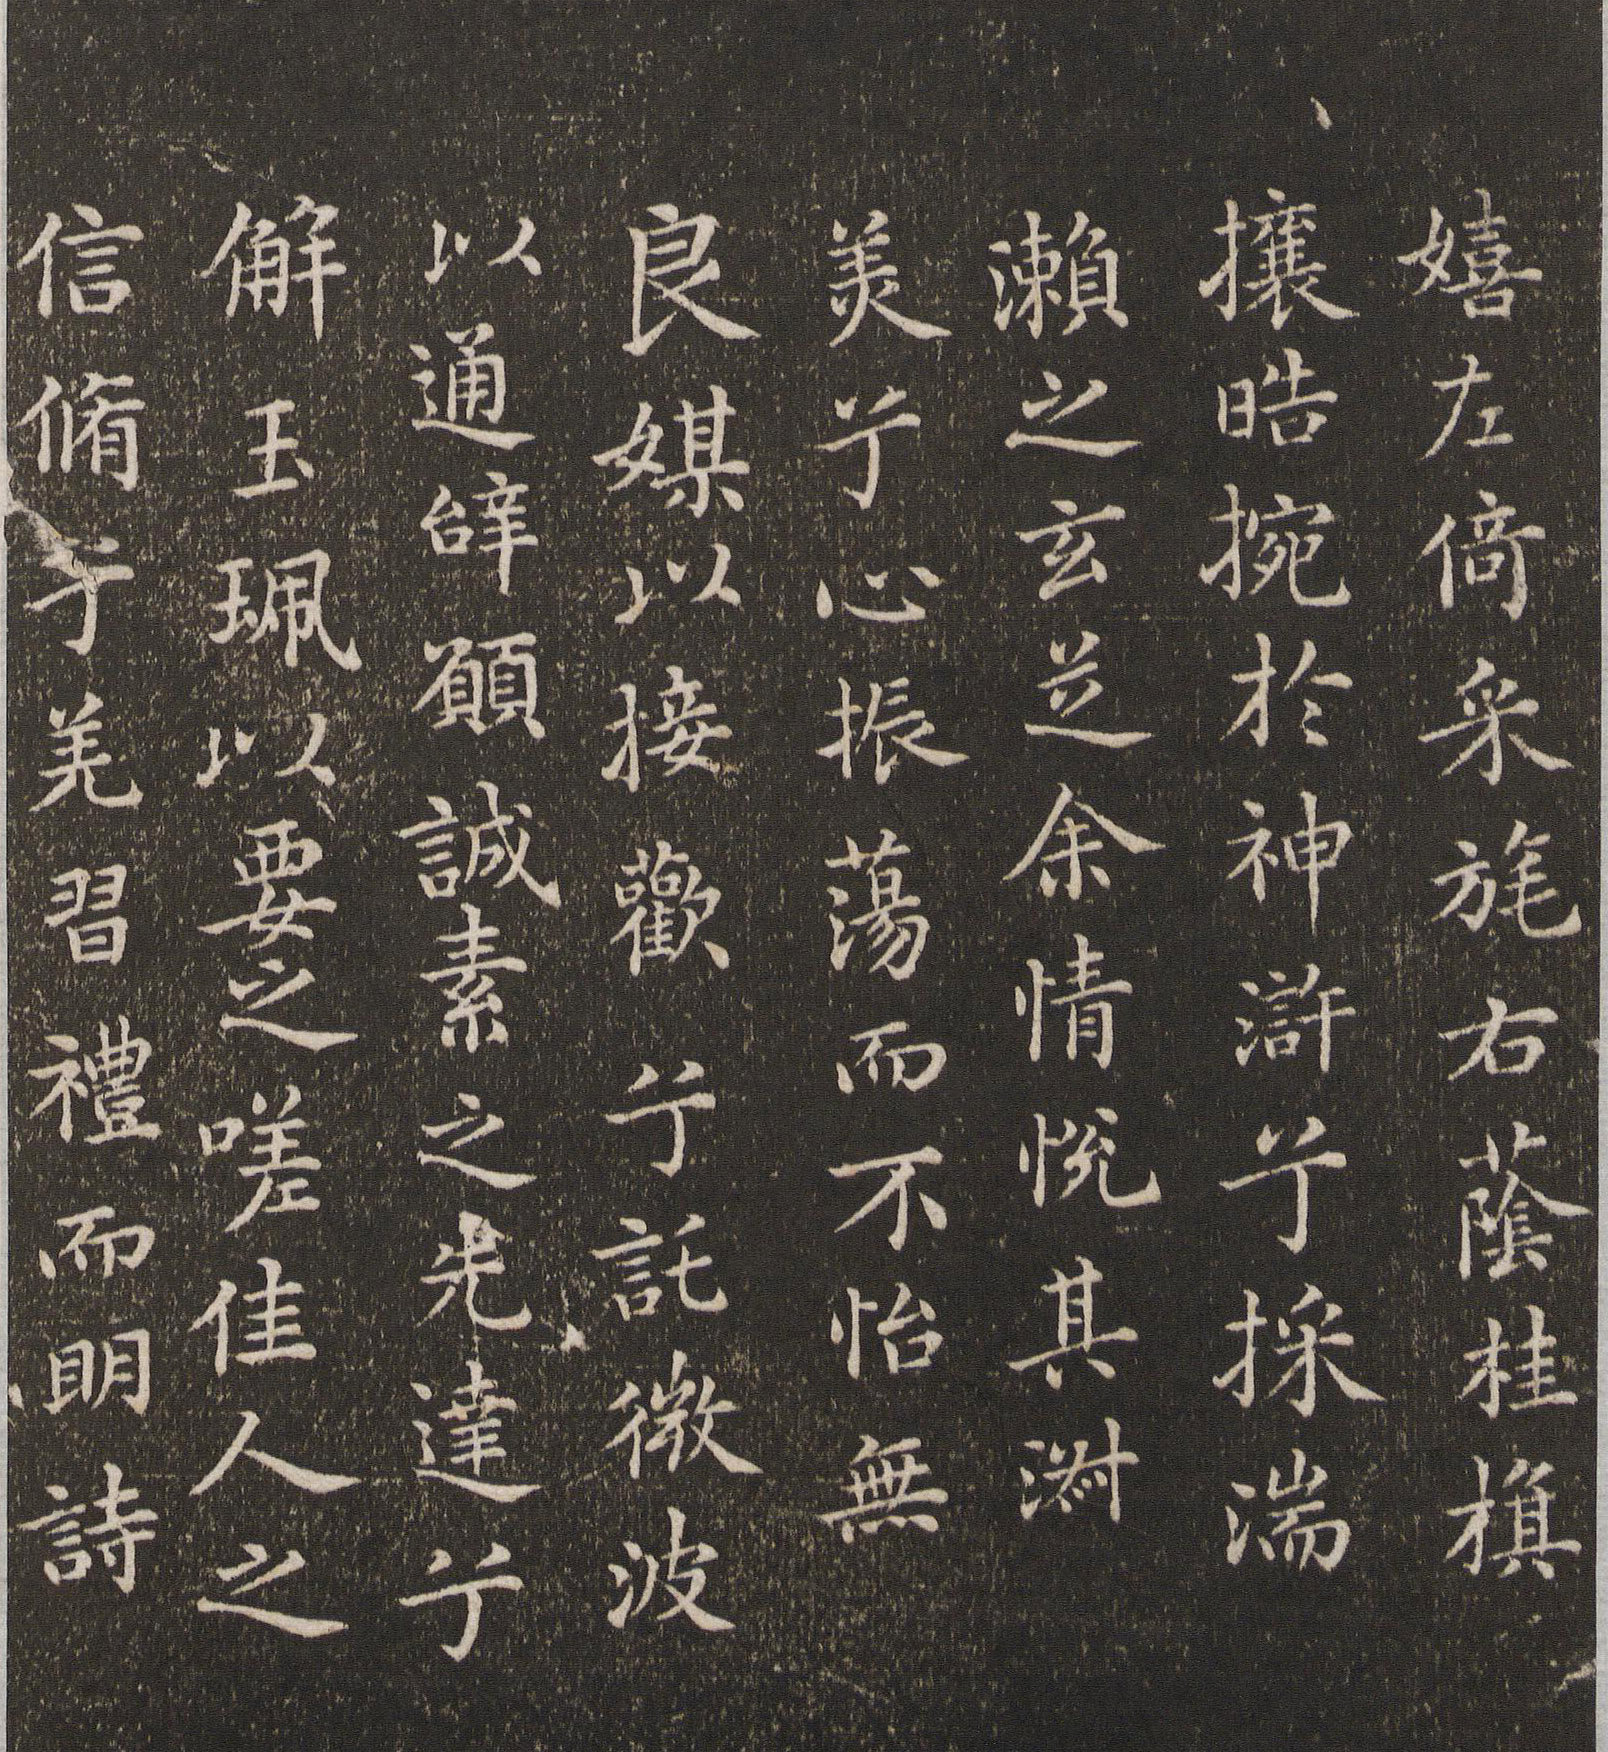 嬉左倚采旄右蔭桂旗
攘皓捥於神滸兮採湍
瀨之玄芝余情悅其淑
美兮心振蕩而不怡無
良媒以接歡兮託微波
以通辭願誠素之先達兮
解玉珮以要之嗟佳人之
信脩兮羌習禮而明詩